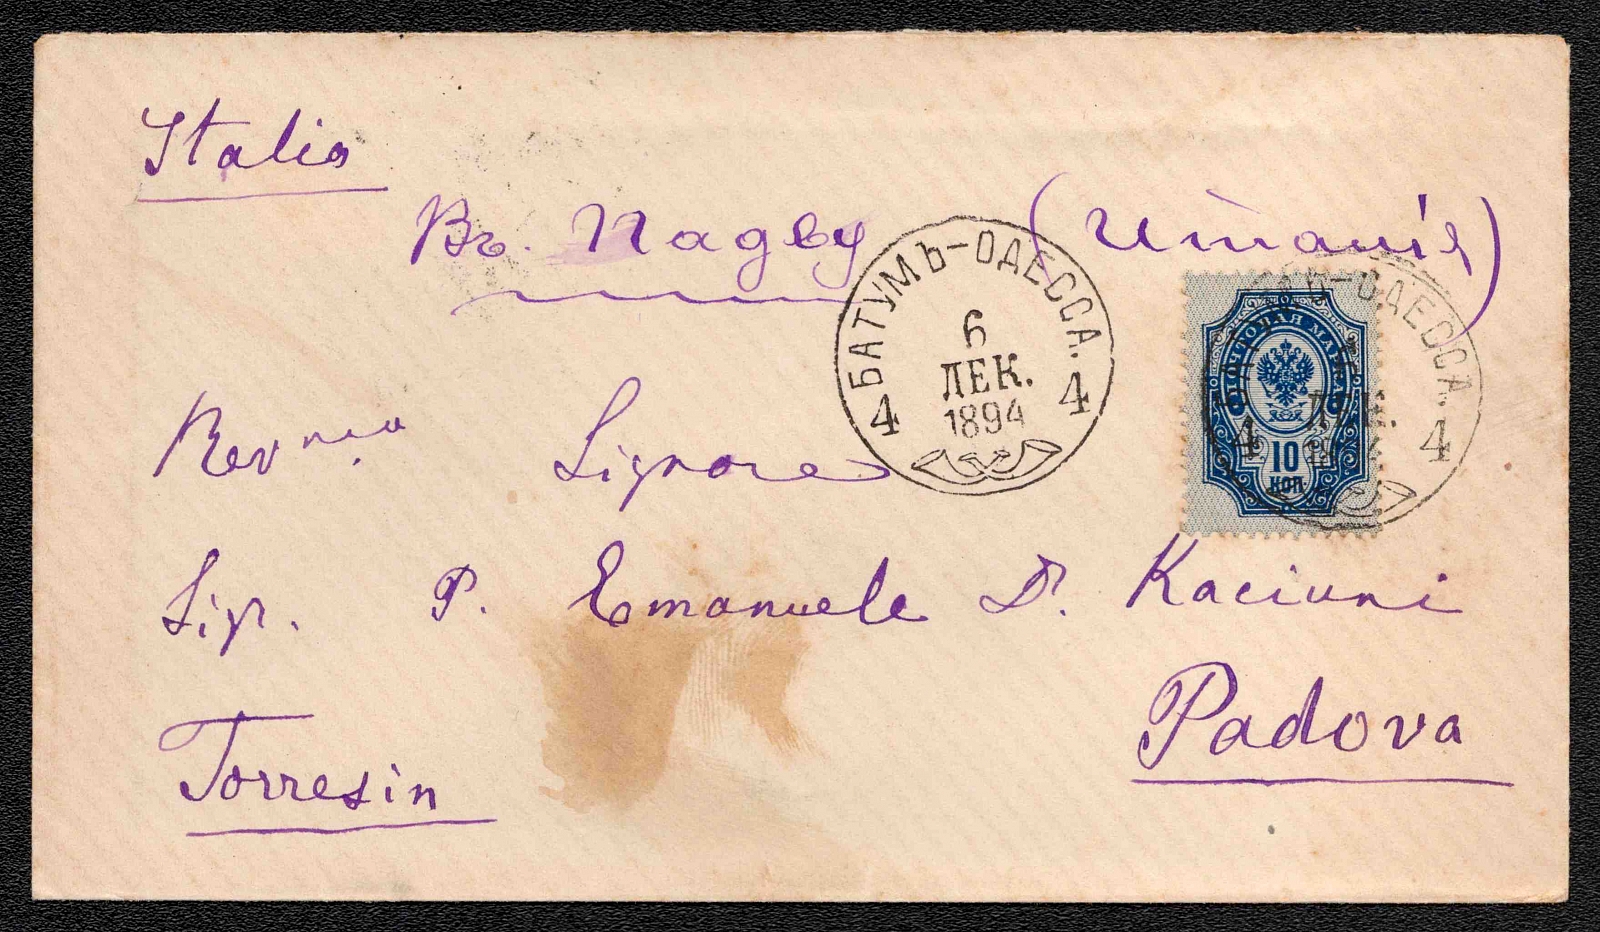 Italia
Въ. Падову (Италія)
БАТУМЪ-ОДЕССА.
6
ДЕК.
1894
4 4
ОДЕССА.
4 4
ПОЧТОВАЯ МАРКА
10
КОП.
Signore
Sig. P. Emanuele Dr. Kaciuni
Padova
Torresin